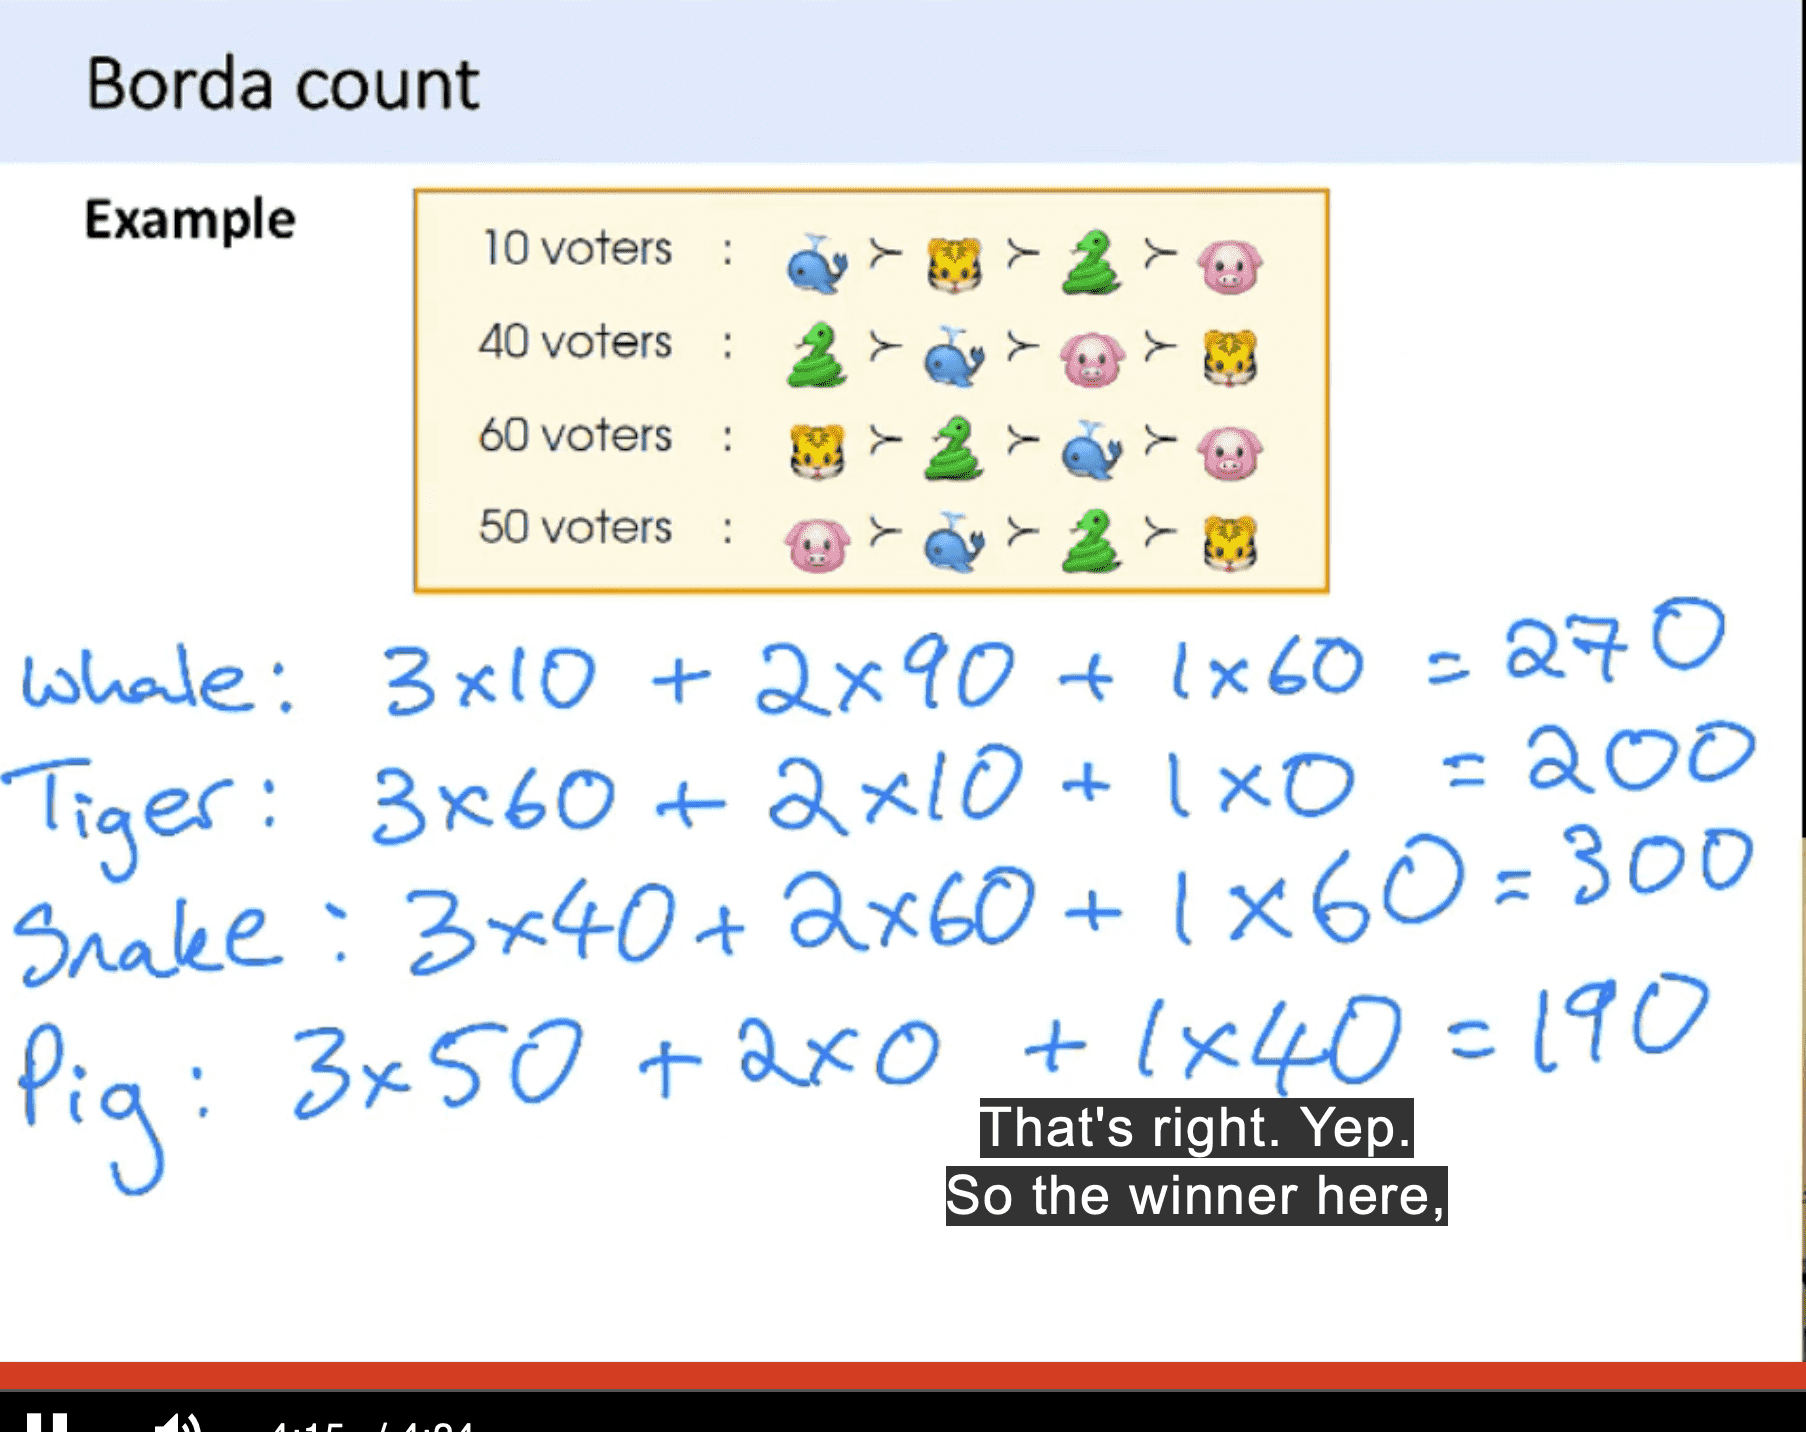 Borda count
Example
10 voters : 🐳 ≻ 🐯 ≻ 🐍 ≻ 🐷
40 voters : 🐍 ≻ 🐳 ≻ 🐷 ≻ 🐯
60 voters : 🐯 ≻ 🐍 ≻ 🐳 ≻ 🐷
50 voters : 🐷 ≻ 🐳 ≻ 🐍 ≻ 🐯
Whale: 3x10 + 2x90 + 1x60 = 270
Tiger: 3x60 + 2x10 + 1x0 = 200
Snake: 3x40 + 2x60 + 1x60 = 300
Pig: 3x50 + 2x0 + 1x40 = 190
That's right. Yep.
So the winner here,